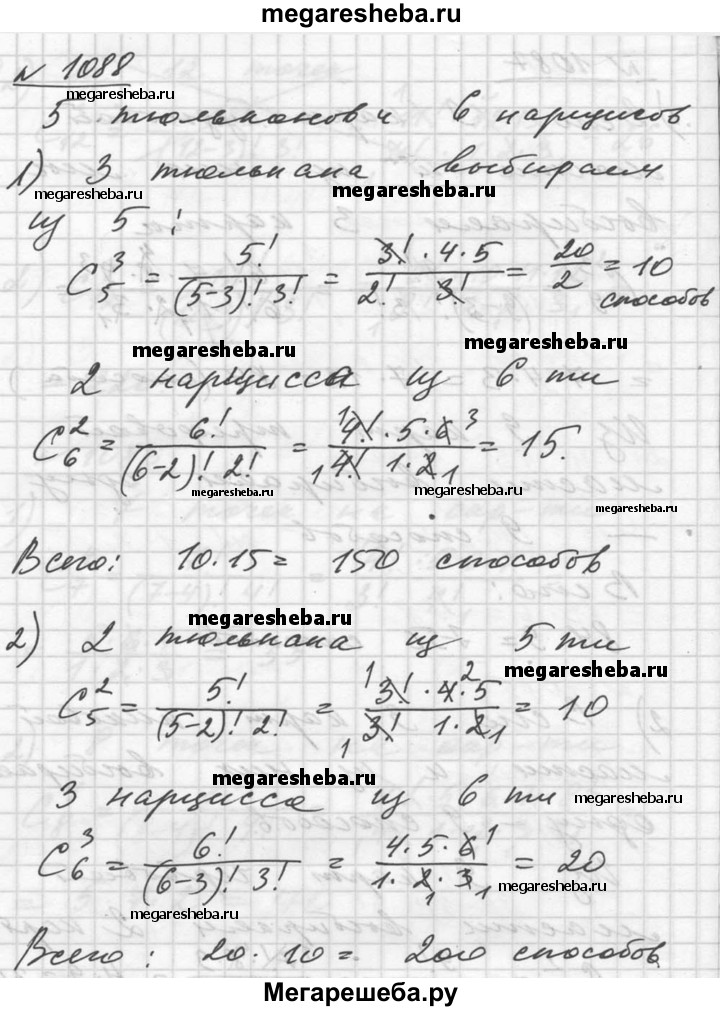 megaresheba.ru
№ 1088
megaresheba.ru
5 тюльпанов и 6 нарцисов
1) 3 тюльпана выбираем
megaresheba.ru megaresheba.ru
из 5!
C₅³ = 5!/((5-3)! 3!) = (3! · 4 · 5)/(2! 3!) = 20/2 = 10 способов
megaresheba.ru megaresheba.ru
2 нарцисса из 6 ти
C₆² = 6!/((6-2)! 2!) = (4! · 5 · 6)/(4! 1 · 2) = 15.
megaresheba.ru megaresheba.ru megaresheba.ru
Всего: 10 · 15 = 150 способов
megaresheba.ru
2) 2 тюльпана из 5 ти
megaresheba.ru
C₅² = 5!/((5-2)! 2!) = (3! · 4 · 5)/(3! 1 · 2) = 10
megaresheba.ru
3 нарцисса из 6 ти megaresheba.ru
C₆³ = 6!/((6-3)! 3!) = (4 · 5 · 6)/(1 · 2 · 3) = 20
megaresheba.ru megaresheba.ru
Всего: 20 · 10 = 200 способов
Мегарешеба.ру